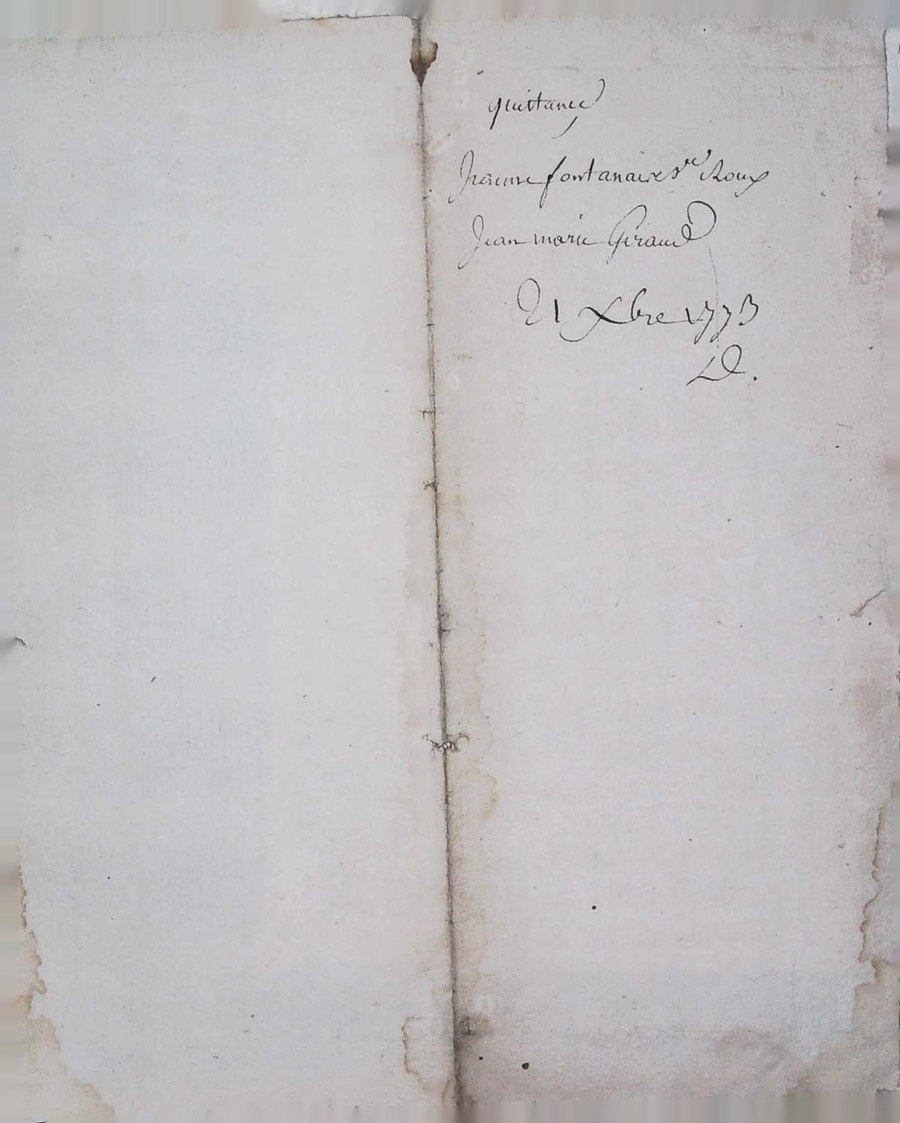 quittance
Jeanne fontanaire Ve Roux
Jean marie Giraud
21 Xbre 1773